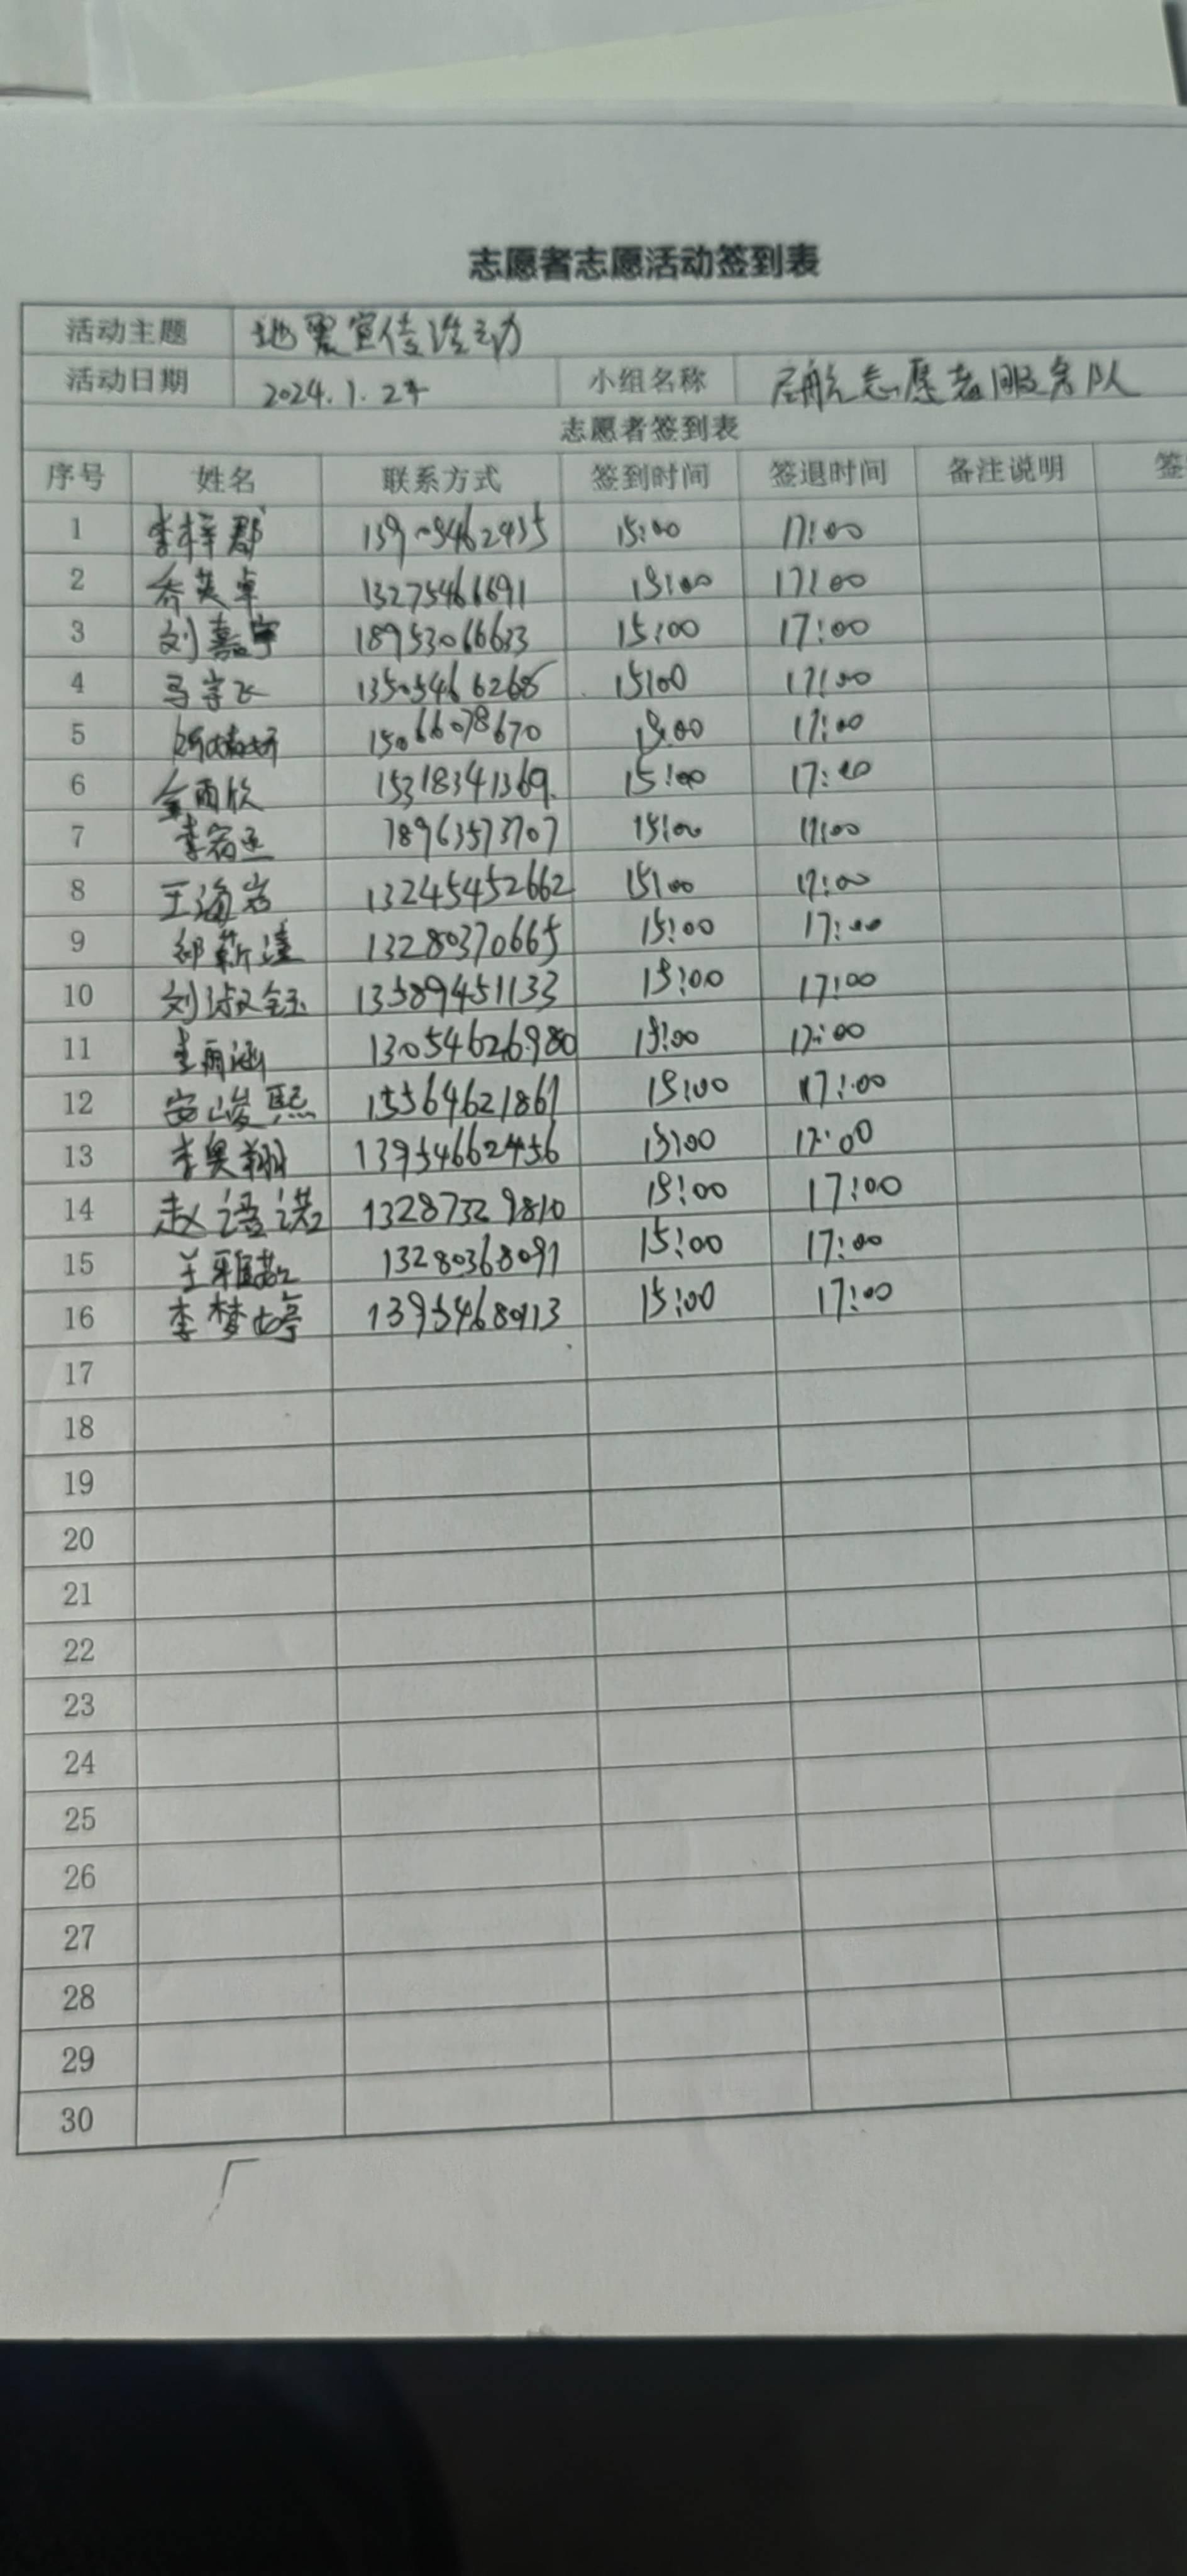 志愿者志愿活动签到表
活动主题 地震宣传活动
活动日期 2024.1.24 小组名称 启航志愿者服务队
志愿者签到表
序号 姓名 联系方式 签到时间 签退时间 备注说明 签
1 李梓郡 13905462435 15:00 17:00
2 乔英卓 13275466691 15:00 17:00
3 刘嘉宇 18953066633 15:00 17:00
4 马宇飞 13505466268 15:00 17:00
5 15066078670 15:00 17:00
6 金雨欣 15318341369 15:00 17:00
7 李宿 18963573707 15:00 17:00
8 王海岩 13245452662 15:00 17:00
9 靳 13280370665 15:00 17:00
10 刘淑钰 13589451133 15:00 17:00
11 李雨涵 13054626980 15:00 17:00
12 安峻熙 15564621867 15:00 17:00
13 李奥翔 13954662456 15:00 17:00
14 赵语诺 13287329810 15:00 17:00
15 王雅 13280368097 15:00 17:00
16 李梦婷 13954680113 15:00 17:00
17
18
19
20
21
22
23
24
25
26
27
28
29
30